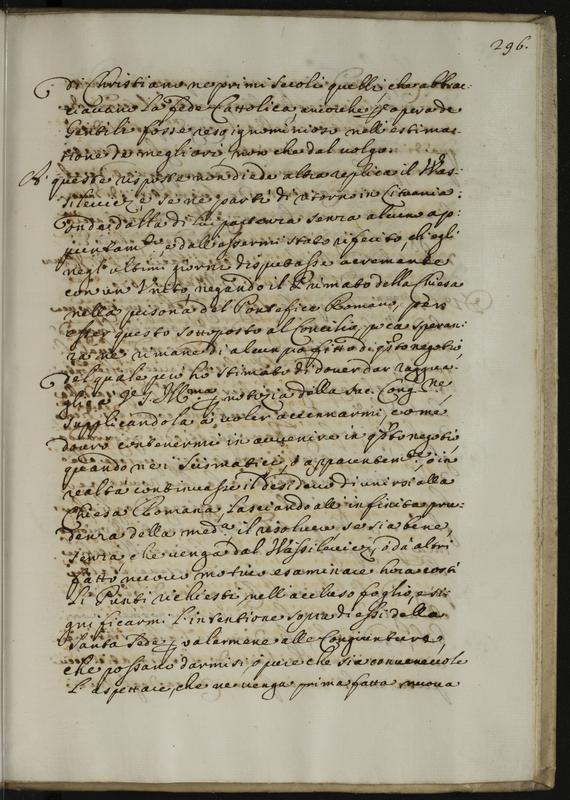 296.
di Christiano ne primi secoli quelli che abbrac-
ciavano la fede Cattolica, ancorche p opera de
Gentili fosse reso ignominioso nell estima-
tione de megliori non che dal volgo.
A' queste risposte non diede altra replica il Was-
silevicz, e se ne partì di ritorno in Lituania:
onde dalla di lui partenza senza alcun ap-
puntam.to, e dall essermi stato riferito, ch egli
negl ultimi giorni disputasse acremente
con un Unito, negando il Primato della Chiesa
nella persona del Pontefice Romano, per
esser questo sottoposto al Concilio, poca speran-
za ne rimane di alcun profitto di q.sto negotio,
del quale però hò stimato di dover dar raggua-
glio à V. S. Ill.ma p notitia della Sac. Cong.ne
supplicandola à voler accennarmi, come
dovrò contenermi in avvenire in q.sto negotio
quando nei Scismatici, ò apparentem.te, ò in
realtà continuasse il desiderio di unirsi alla
Chiesa Romana, lasciando all infinita pru-
denza della med.a il risolvere, se sia bene,
senza che venga dal Wassilevicz, ò da altri
fatto nuovo motivo esaminare hora costì
li Punti richiesti nell accluso foglio, e si-
gnificarmi l intentione sopra di essi della
Santa Sede p valermene alle congiunture,
che possano darmisi, ò pure che sia convenevole
l aspettare, che ne venga prima fatta nuova